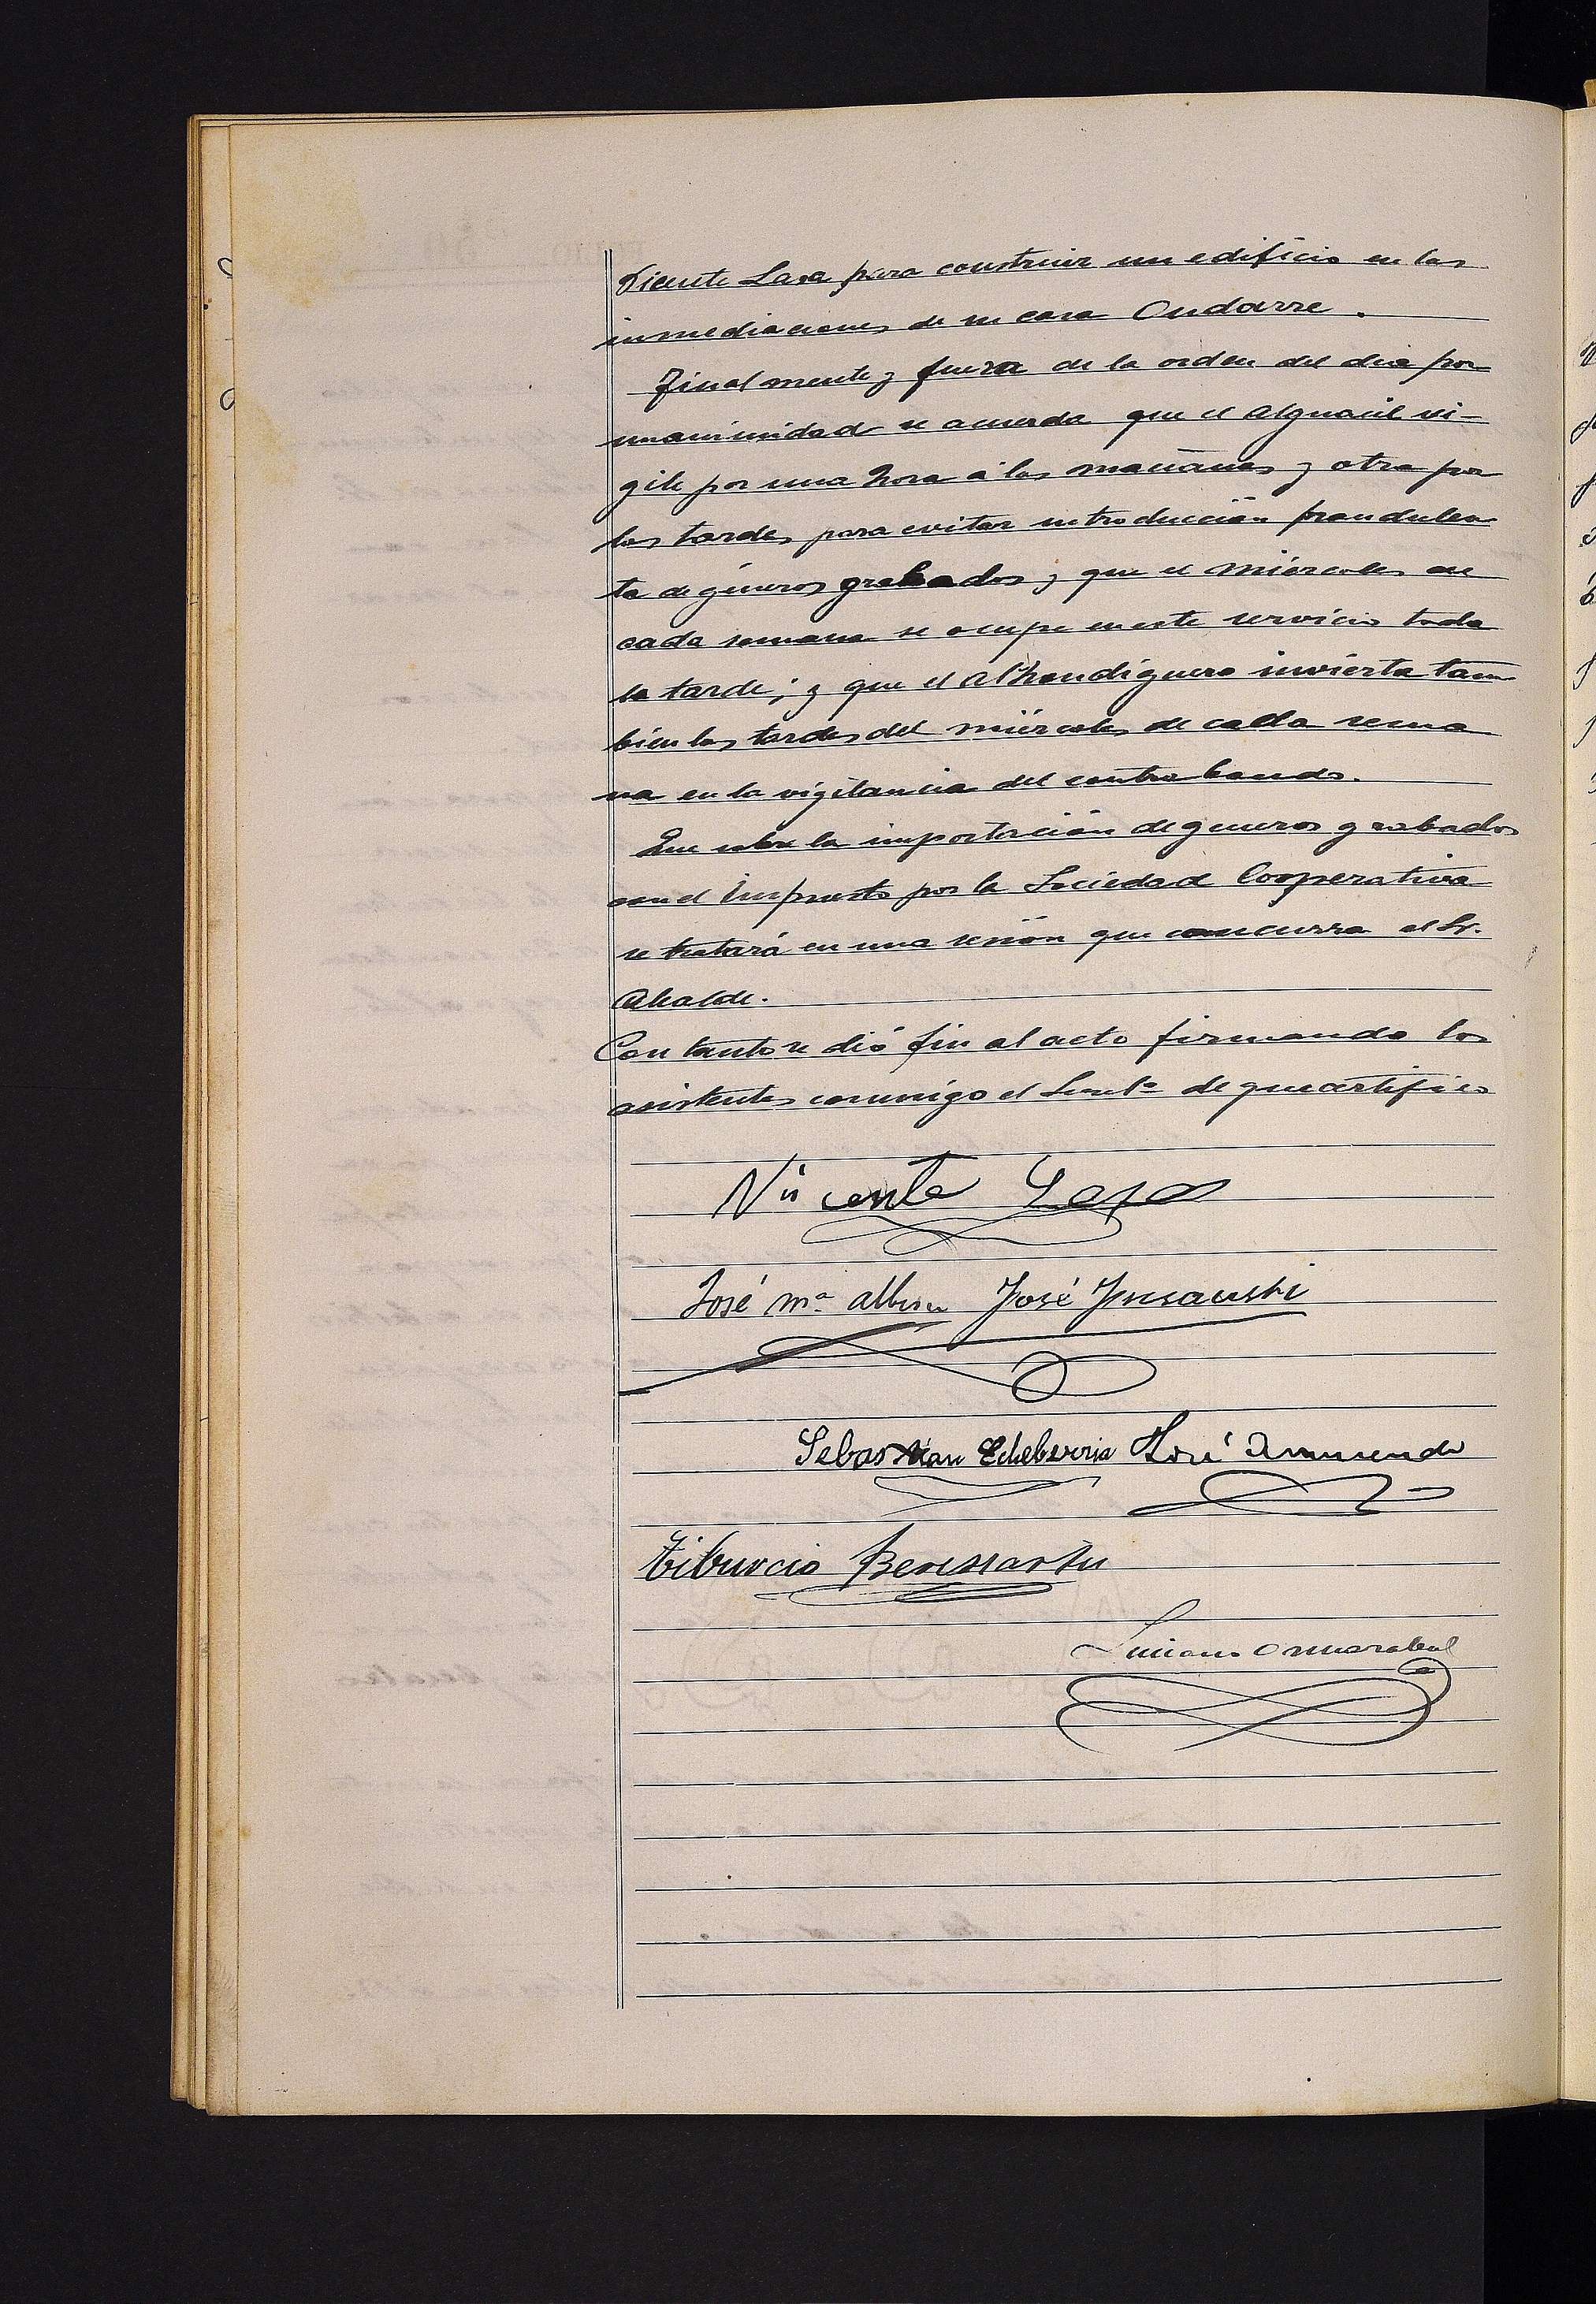 Vicente Lasa para construir un edificio en las
inmediaciones de su casa Ondarre.
Finalmente y fuera de la orden del dia por
unanimidad se acuerda que el alguacil vi-
gile por una hora á las mañanas y otra por
las tardes para evitar introducción fraudulen
ta de géneros grabados y que el miércoles de
cada semana se ocupe en este servicio toda
la tarde; y que el alhondiguero invierta tam
bien las tardes del miércoles de cada sema
na en la vigilancia del contrabando.
Que sobre la importación de generos grabados
con el impuesto por la Sociedad Cooperativa
se tratará en una sesión que concurra el Sr.
Alcalde.
Con tanto se dió fin al acto firmando los
asistentes conmigo el Secretº de que certifico
Vicente Lasa
José Mª José Insausti
Sebastian Echeberria José
Tiburcio
Luciano